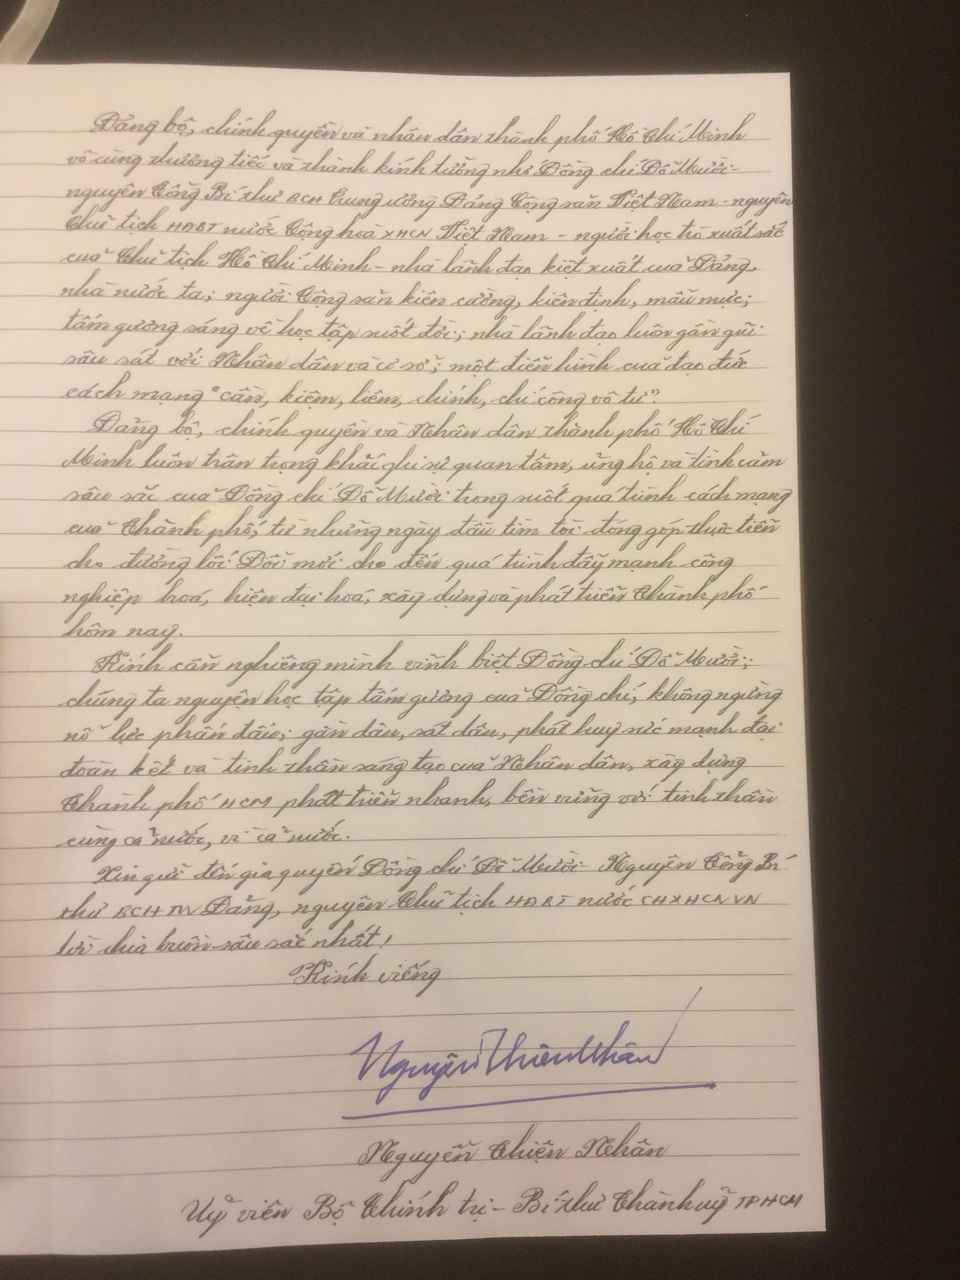 Đảng bộ, chính quyền và nhân dân thành phố Hồ Chí Minh
vô cùng thương tiếc và thành kính tưởng nhớ Đồng chí Đỗ Mười -
nguyên Tổng Bí thư BCH Trung ương Đảng Cộng sản Việt Nam - nguyên
Chủ tịch HĐBT nước Cộng hoà XHCN Việt Nam - người học trò xuất sắc
của Chủ tịch Hồ Chí Minh - nhà lãnh đạo kiệt xuất của Đảng,
nhà nước ta; người Cộng sản kiên cường, kiên định, mẫu mực;
tấm gương sáng về học tập suốt đời; nhà lãnh đạo luôn gần gũi
sâu sát với Nhân dân và cơ sở; một điển hình của đạo đức
cách mạng "cần, kiệm, liêm, chính, chí công vô tư".
Đảng bộ, chính quyền và Nhân dân thành phố Hồ Chí
Minh luôn trân trọng khắc ghi sự quan tâm, ủng hộ và tình cảm
sâu sắc của Đồng chí Đỗ Mười trong suốt quá trình cách mạng
của Thành phố, từ những ngày đầu tìm tòi đóng góp thực tiễn
cho đường lối Đổi mới cho đến quá trình đẩy mạnh công
nghiệp hoá, hiện đại hoá, xây dựng và phát triển Thành phố
hôm nay.
Kính cẩn nghiêng mình vĩnh biệt Đồng chí Đỗ Mười;
chúng ta nguyện học tập tấm gương của Đồng chí, không ngừng
nỗ lực phấn đấu; gần dân, sát dân, phát huy sức mạnh đại
đoàn kết và tinh thần sáng tạo của Nhân dân, xây dựng
Thành phố HCM phát triển nhanh, bền vững với tinh thần
cùng cả nước, vì cả nước.
Xin gửi đến gia quyến Đồng chí Đỗ Mười Nguyên Tổng Bí
thư BCHTW Đảng, nguyên Chủ tịch HĐBT nước CHXHCNVN
lời chia buồn sâu sắc nhất!
Kính viếng
Nguyễn Thiện Nhân
Nguyễn Thiện Nhân
Uỷ viên Bộ Chính trị - Bí thư Thành uỷ TPHCM